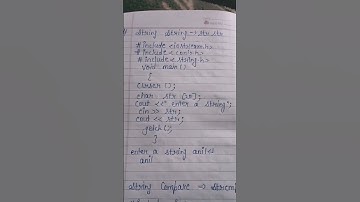 String String → str, str
#include <iostream.h>
#include <conio.h>
#include <string.h>
void main ()
{
clrscr ();
char str [20];
cout <<" enter a string";
cin >> str;
cout << str;
getch ();
}
enter a string anil
anil
String Compare ⇒ Strcm